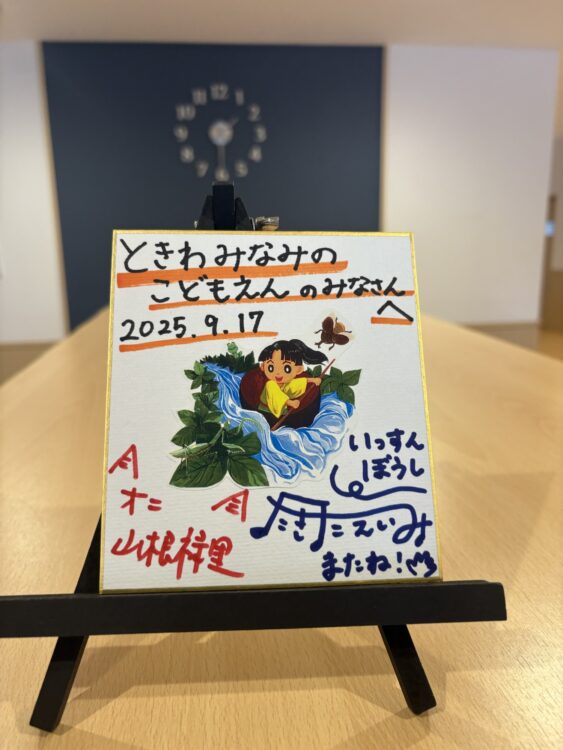 ときわみなみの
こどもえんのみなさん
へ
2025.9.17
いっすん
ぼうし
オニ
山根梓里
たきたえいみ
またね!
12
1
2
3
5
7
8
9
10
11